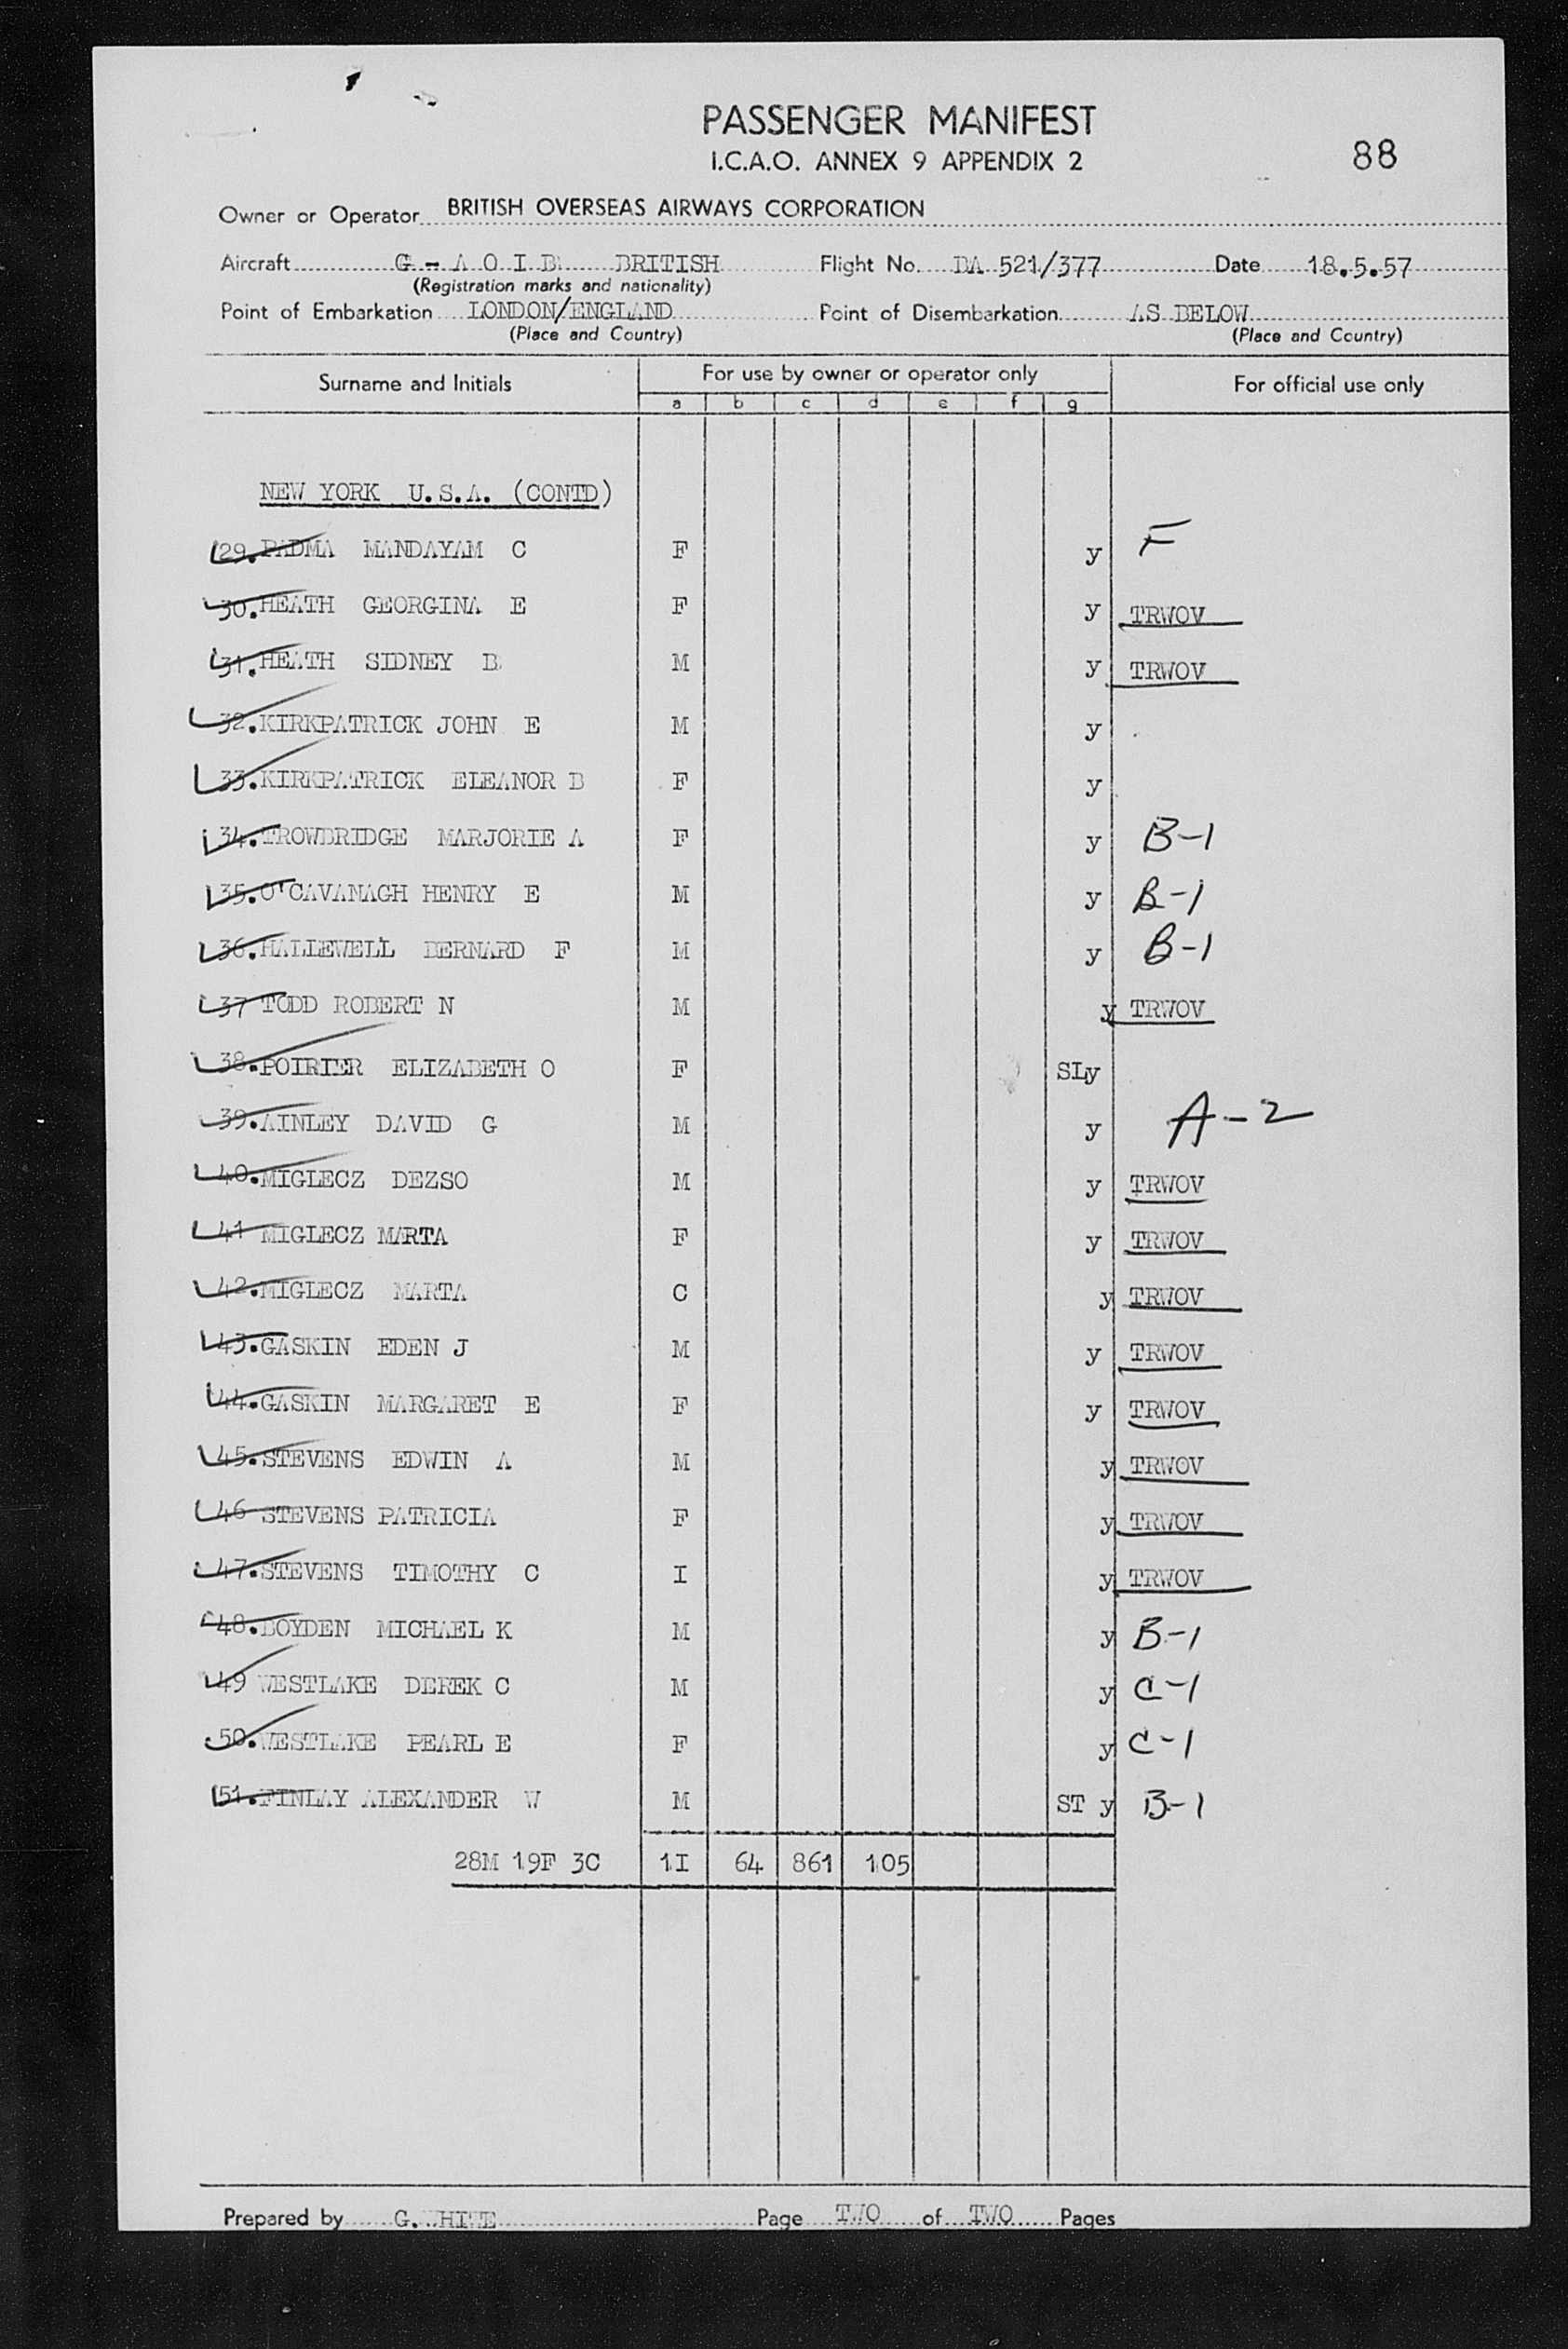 PASSENGER MANIFEST
I.C.A.O. ANNEX 9 APPENDIX 2
88
Owner or Operator BRITISH OVERSEAS AIRWAYS CORPORATION
Aircraft G - A O I B BRITISH Flight No. BA 521/377 Date 18.5.57
(Registration marks and nationality)
Point of Embarkation LONDON/ENGLAND Point of Disembarkation AS BELOW
(Place and Country) (Place and Country)
Surname and Initials For use by owner or operator only For official use only
a b c d e f g
NEW YORK U.S.A. (CONTD)
29. PADMA MANDAYAM C F y F
30. HEATH GEORGINA E F y TRWOV
31. HEATH SIDNEY B M y TRWOV
32. KIRKPATRICK JOHN E M y
33. KIRKPATRICK ELEANOR B F y
34. TROWBRIDGE MARJORIE A F y B-1
35. O'CAVANAGH HENRY E M y B-1
36. HALLEWELL BERNARD F M y B-1
37 TODD ROBERT N M y TRWOV
38. POIRIER ELIZABETH O F SLy
39. AINLEY DAVID G M y A-2
40. MIGLECZ DEZSO M y TRWOV
41 MIGLECZ MARTA F y TRWOV
42. MIGLECZ MARTA C y TRWOV
43. GASKIN EDEN J M y TRWOV
44. GASKIN MARGARET E F y TRWOV
45. STEVENS EDWIN A M y TRWOV
46 STEVENS PATRICIA F y TRWOV
47. STEVENS TIMOTHY C I y TRWOV
48. BOYDEN MICHAEL K M y B-1
49 WESTLAKE DEREK C M y C-1
50. WESTLAKE PEARL E F y C-1
51. FINLAY ALEXANDER W M ST y B-1
28M 19F 3C 1I 64 861 105
Prepared by G. WHITE Page TWO of TWO Pages